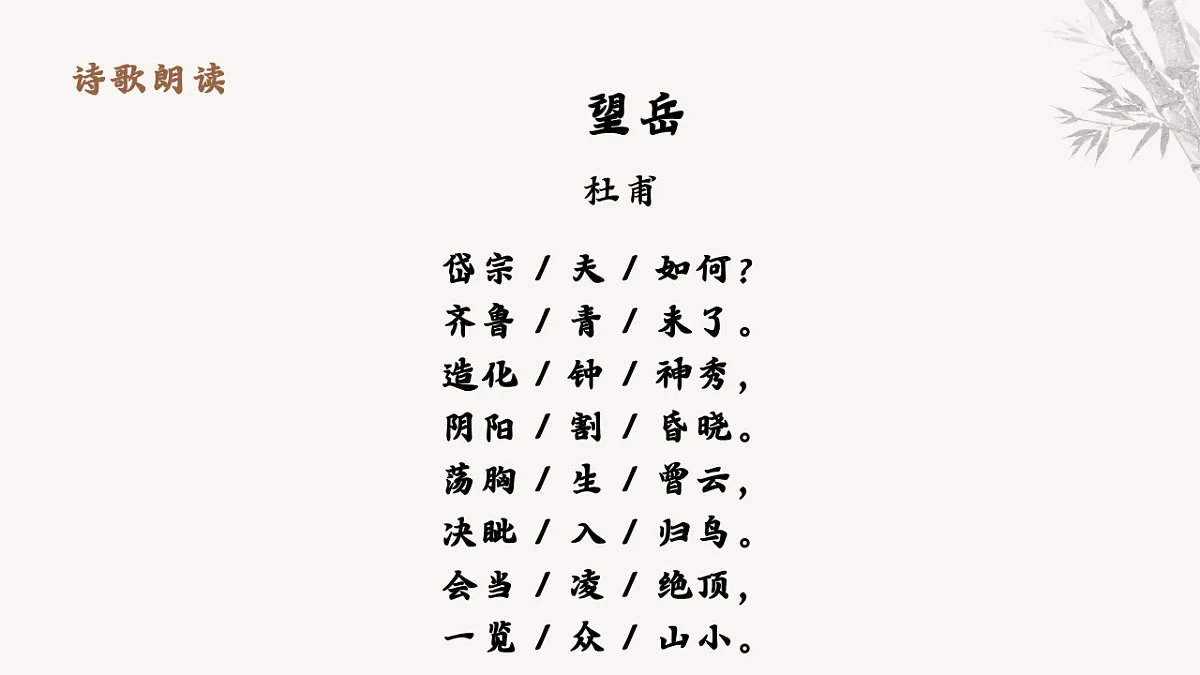 诗歌朗读
望岳
杜甫
岱宗 / 夫 / 如何?
齐鲁 / 青 / 未了。
造化 / 钟 / 神秀,
阴阳 / 割 / 昏晓。
荡胸 / 生 / 曾云,
决眦 / 入 / 归鸟。
会当 / 凌 / 绝顶,
一览 / 众 / 山小。